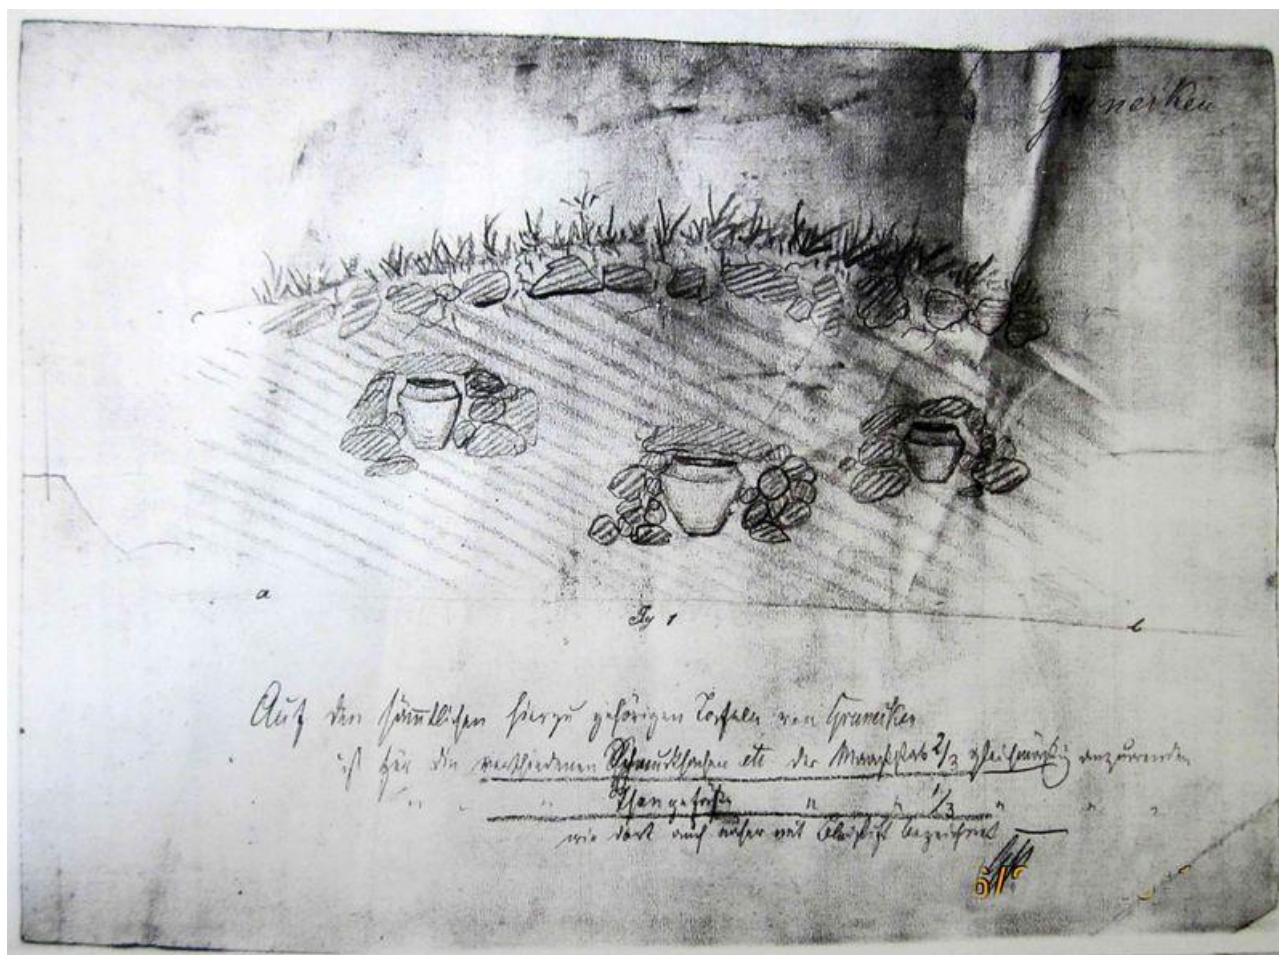 Gruneiken
a
Fig 1
b
Auf den sämtlichen hierzu gehörigen Tafeln von Gruneiken
ist für die verschiedenen Schmucksachen etc der Maaßstab 2/3 gleichmäßig anzuwenden
" " " Thongefäße " " 1/3 " " "
wie dort auch näher mit Bleistift bezeichnet